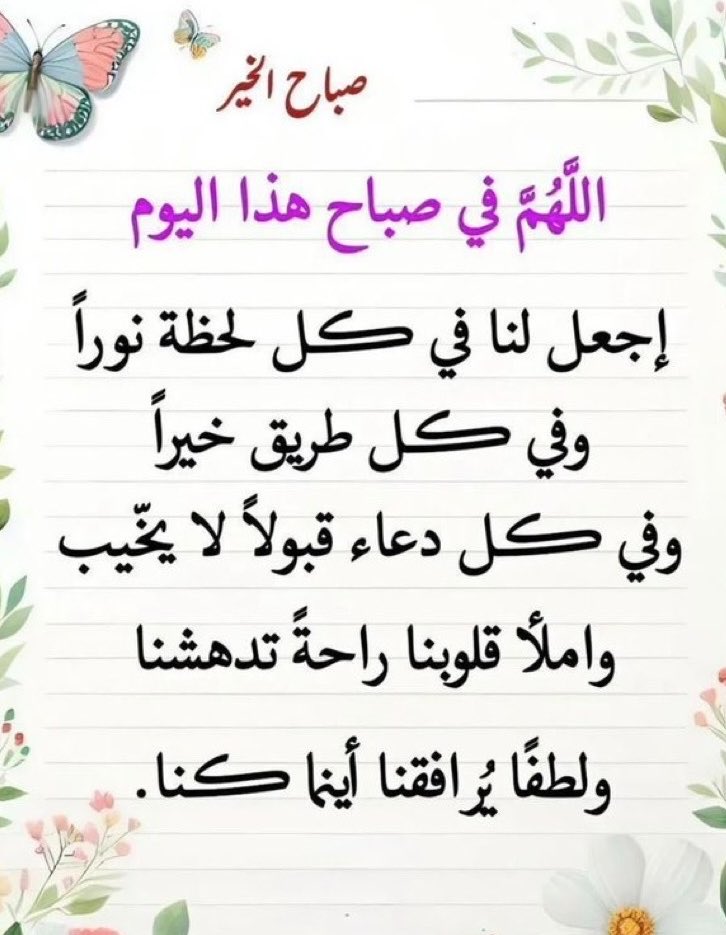 صباح الخير
اللَّهُمَّ في صباح هذا اليوم
إجعل لنا في كل لحظة نوراً
وفي كل طريق خيراً
وفي كل دعاء قبولاً لا يخّيب
واملأ قلوبنا راحةً تدهشنا
ولطفًا يُرافقنا أينما كنا.